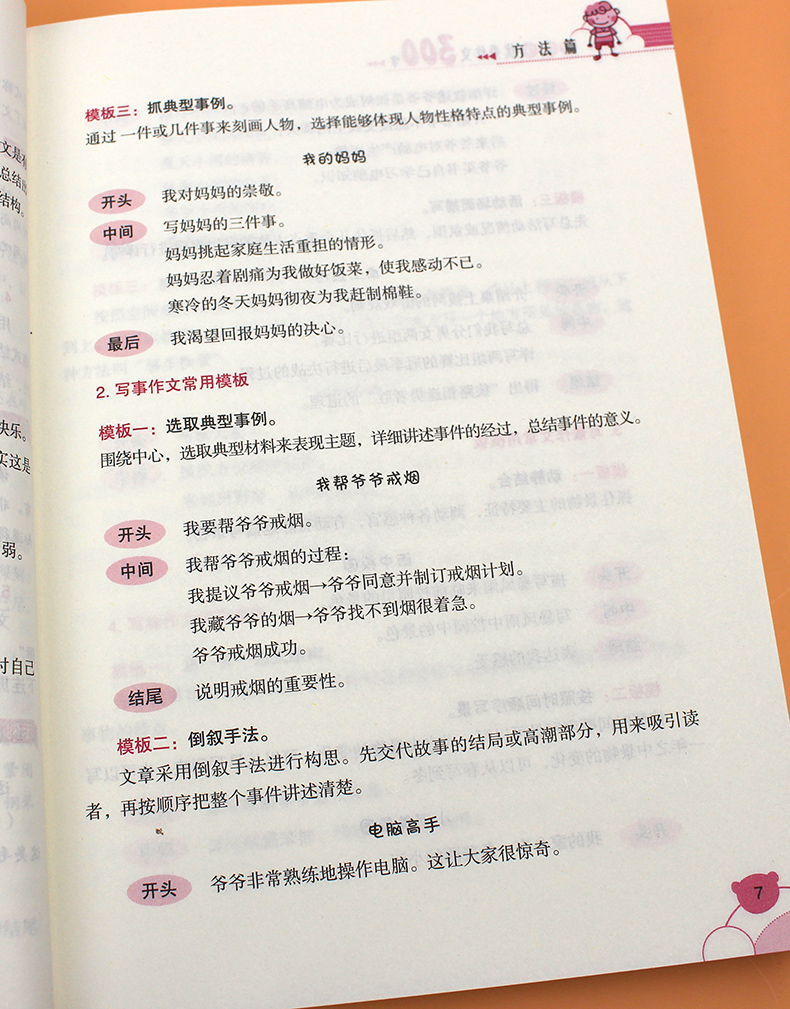 方法篇
模板三：抓典型事例。
通过一件或几件事来刻画人物，选择能够体现人物性格特点的典型事例。
我的妈妈
开头 我对妈妈的崇敬。
中间 写妈妈的三件事。
妈妈挑起家庭生活重担的情形。
妈妈忍着剧痛为我做好饭菜，使我感动不已。
寒冷的冬天妈妈彻夜为我赶制棉鞋。
最后 我渴望回报妈妈的决心。
2. 写事作文常用模板
模板一：选取典型事例。
围绕中心，选取典型材料来表现主题，详细讲述事件的经过，总结事件的意义。
我帮爷爷戒烟
开头 我要帮爷爷戒烟。
中间 我帮爷爷戒烟的过程：
我提议爷爷戒烟→爷爷同意并制订戒烟计划。
我藏爷爷的烟→爷爷找不到烟很着急。
爷爷戒烟成功。
结尾 说明戒烟的重要性。
模板二：倒叙手法。
文章采用倒叙手法进行构思。先交代故事的结局或高潮部分，用来吸引读
者，再按顺序把整个事件讲述清楚。
电脑高手
开头 爷爷非常熟练地操作电脑。这让大家很惊奇。
7
文是有
总结出
结构。
快乐。
实这是
弱。
付自己